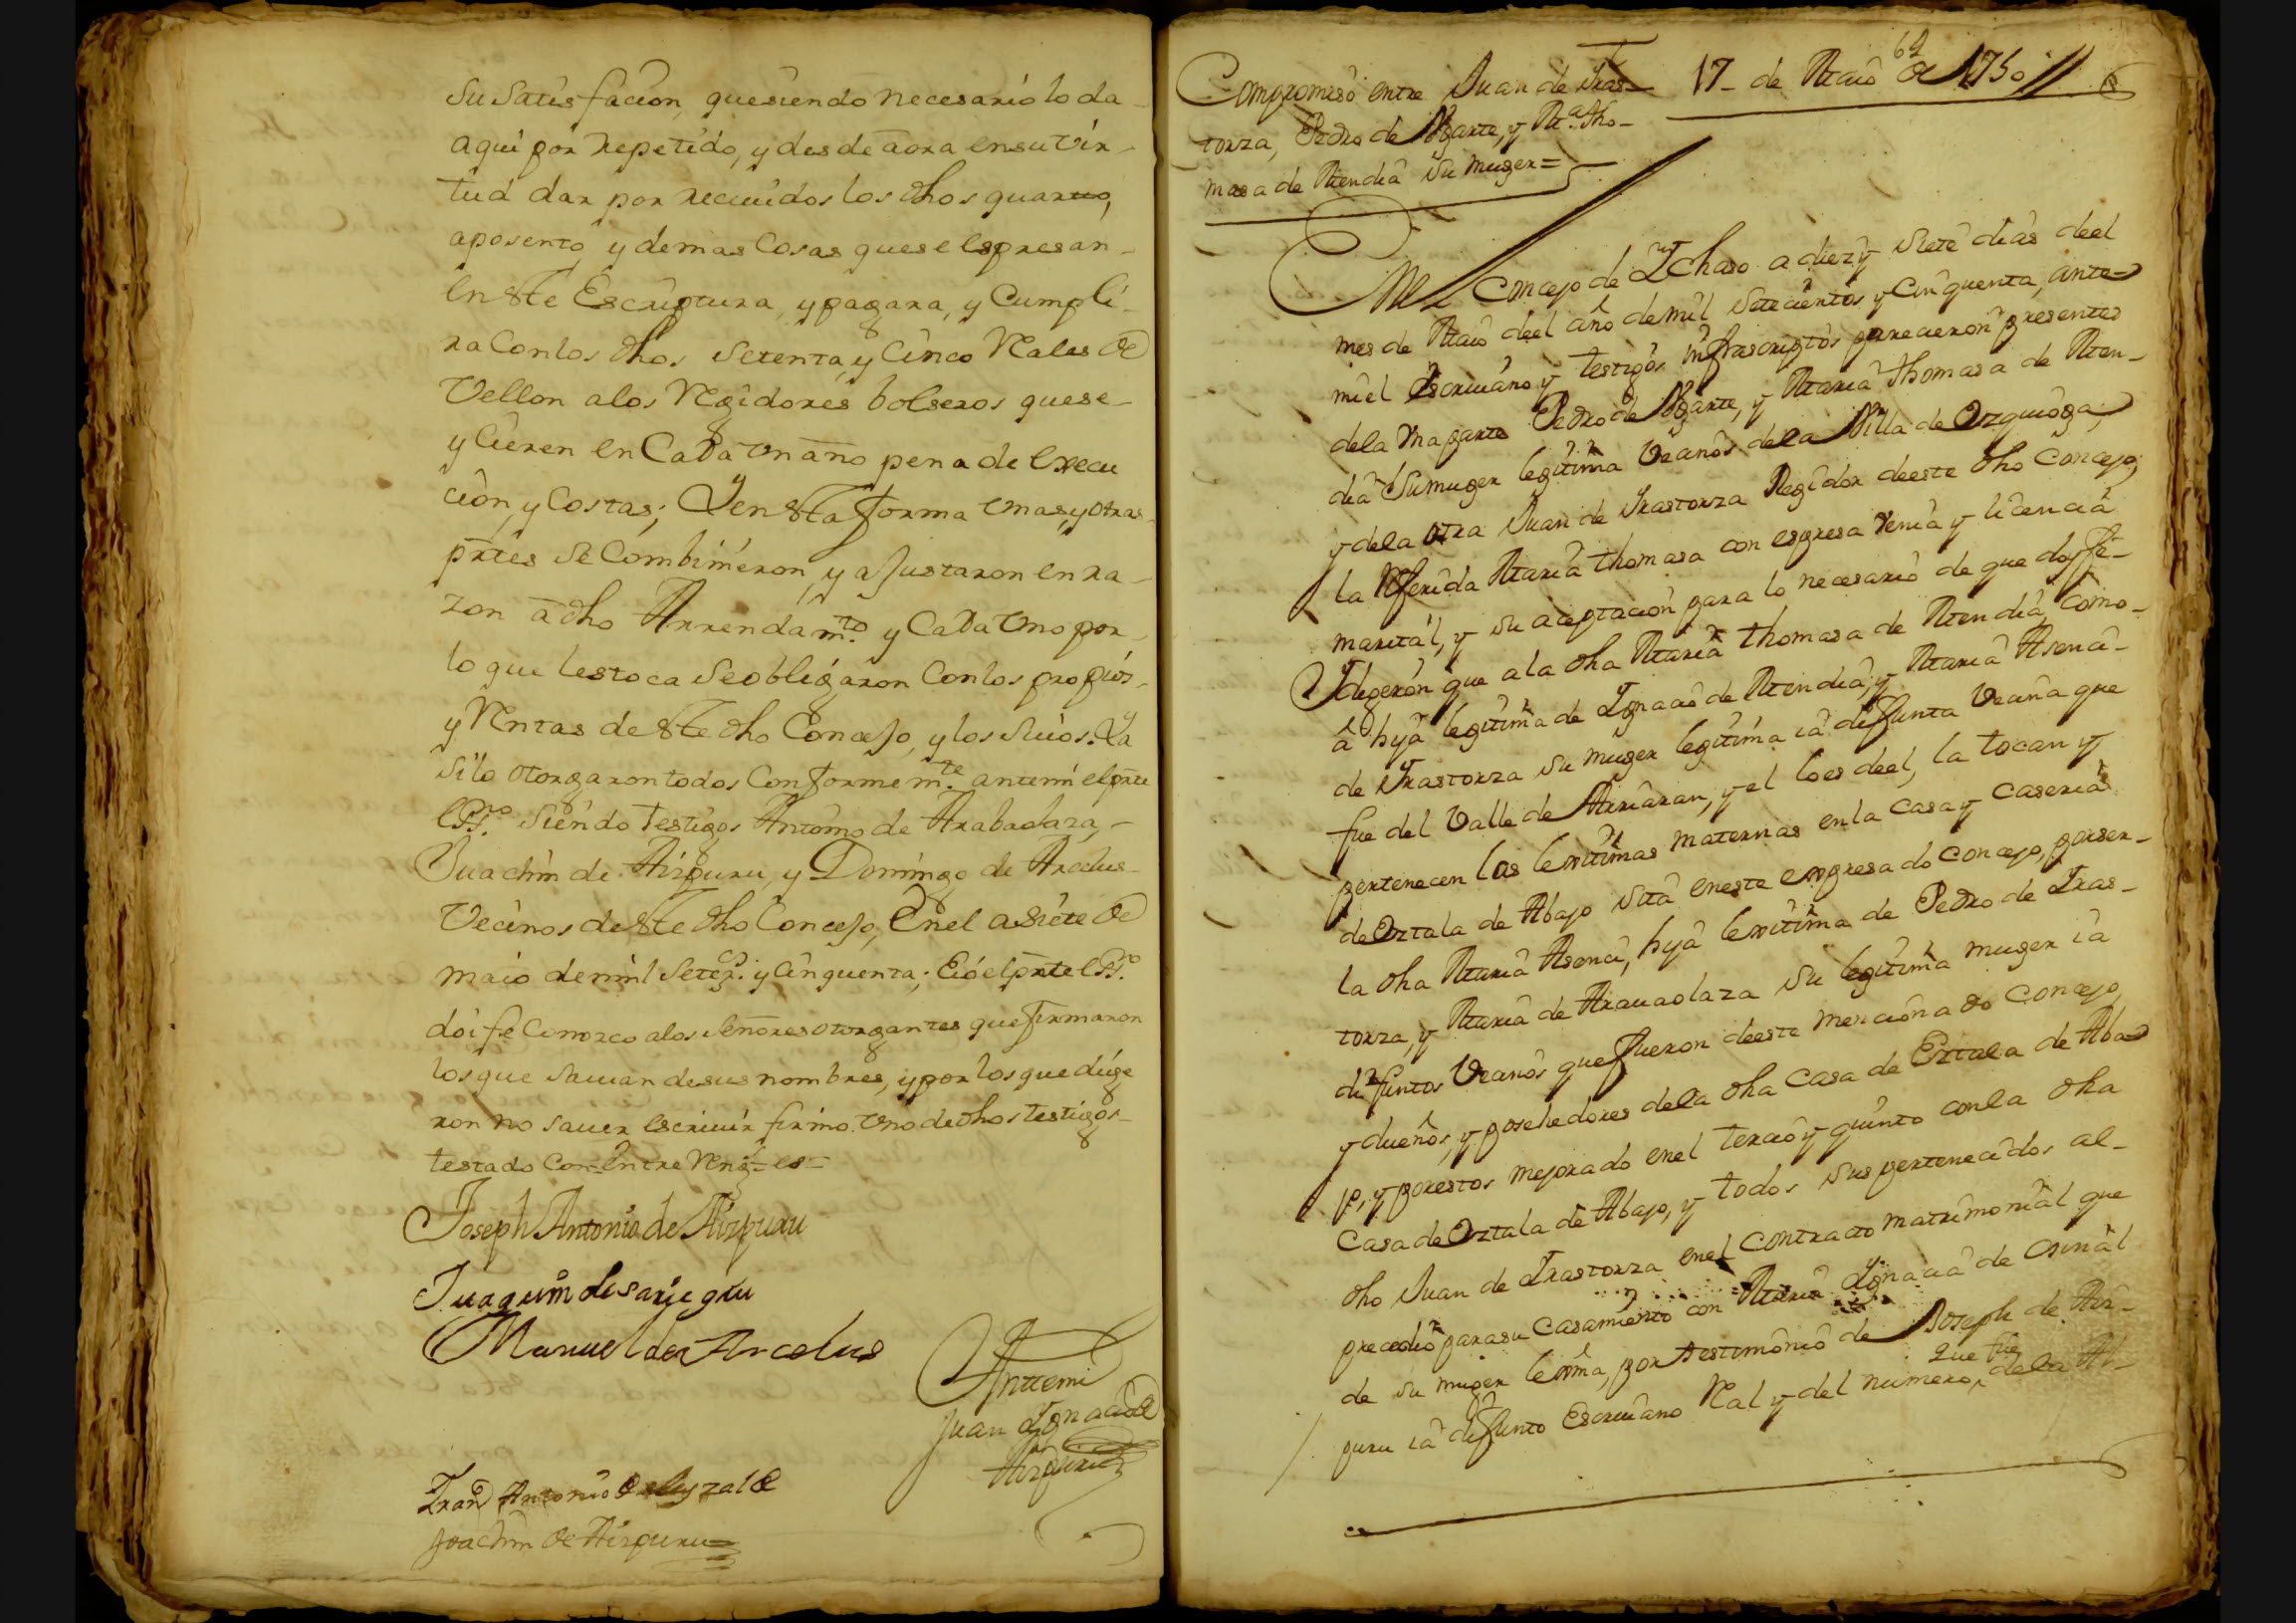 Su Satisfacion, que siendo necesario lo da
aqui por repetido, y desde aora en su vir-
tud dar por reciuidos los dhos quarto,
aposento, y demas Cosas que se espresan
en este Escriptura, y pagara, y Cumpli-
ra Con los dhos setenta, y Cinco Rales de
Vellon a los Regidores bolseros que se-
ycieren en Cada un año pena de execu
cion, y Costas; Y en esta forma unas, y otras
prtes se Combinieron, y ajustaron en ra-
zon a dho Arrendamto. y Cada uno por
lo que les toca se obligaron Con los propios
y Rentas de este dho Concejo, y los suios. Ya
si lo otorgaron todos Conformemte. ante mi el prte
essno. siendo testigos Antonio de Arabaolaza,
Juachin de Aizpuru, y Domingo de Arcelus
Vecinos de este dho Concejo, En el a siete de
maio de mil setezs. y Cinquenta; E io el prte essno.
doi fe Conozco a los señores otorgantes que firmaron
los que sauian de sus nombres, y por los que dige
ron no sauer escriuir firmo uno de dhos testigos
testado Con= Entre Reng.= es=
Joseph Antonio de Aizpuru
Juaquin de sariegui
Manuel de Arcelus
Antemi
Juan Ygnacio de
Aizpuru
Fran Antonio de
Joachin de Aizpuru
64
Compromiso entre Juan de Yras- 17 - de Maio de 1750 //
torza, Pedro de Ugarte, y Ma. Tho-
masa de Mendia su muger=
En el Concejo de Ychaso a diez y siete dias deel
mes de Maio deel año de mil setecientos y Cinquenta, ante
mi el Escriuano y testigos infrascriptos parecieron presentes
de la una parte Pedro de Ugarte, y Maria thomasa de Men-
dia su muger legitima Vecinos de la Villa de Ezquioga,
y de la otra Juan de Yrastorza Regidor deeste dho Concejo,
la Referida Maria thomasa con espresa venia y licencia
marital, y su aceptacion para lo necesario de que doy fe-
Y digeron que a la dha Maria thomasa de Mendia, como
a hija legitima de Ygnacio de Mendia, y Maria Asenci-
de Yrastorza su muger legitima ia difunta Vecina que
fue del Valle de Arriaran, y el lo es deel, la tocan y
pertenecen las lexitimas maternas en la casa y caseria
de Eztala de Abajo sita en este expresado concejo, por ser
la dha Maria Asenci, hija lexitima de Pedro de Yras-
torza, y Maria de Arauaolaza su legitima muger ia
difuntos Vecinos que fueron deeste mencionado Concejo,
y dueños, y posehedores de la dha Casa de Eztala de Aba
jo, y por estos mejorado en el tercio y quinto con la dha
Casa de Eztala de Abajo, y todos sus pertenecidos al-
dho Juan de Yrastorza en el contracto matrimonial que
precedio para su Casamiento con Maria Ygnacia de Osinal
de su muger lexma, por testimonio de Joseph de Aiz-
que fue
puru ia difunto Escriuano Ral y del numero, de la Al-